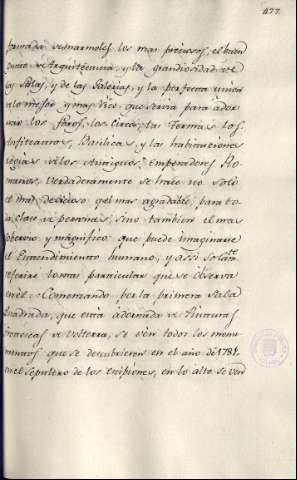 477
formada de marmoles los mas preciosos, el buen
gusto de Arquitectura, y la grandiosidad de
las Salas, y de las Galerias, y la perfecta union
de lo mejor y mas rico que servia para ador
nar los foros, los Circos, las Termas, los
Anfiteatros, Basilica, y las habitaciones
regias de los antiguos Emperadores Ro
manos, verdaderamente se hace no solo
el mas delicioso y el mas agradable, para to
da clase de personas, sino tambien el mas
soberuio y magnifico que puede imaginarse
el Entendimiento humano, y assi solam.te
referire lo mas particular que se observa
en el. Comenzando por la primera Sala
Quadrada, que está adornada de Pinturas
de Volterra, se vén todos los monu
mentos que se descubrieron en el año de 1781,
en el sepulcro de los Scipiones, en lo alto se ven